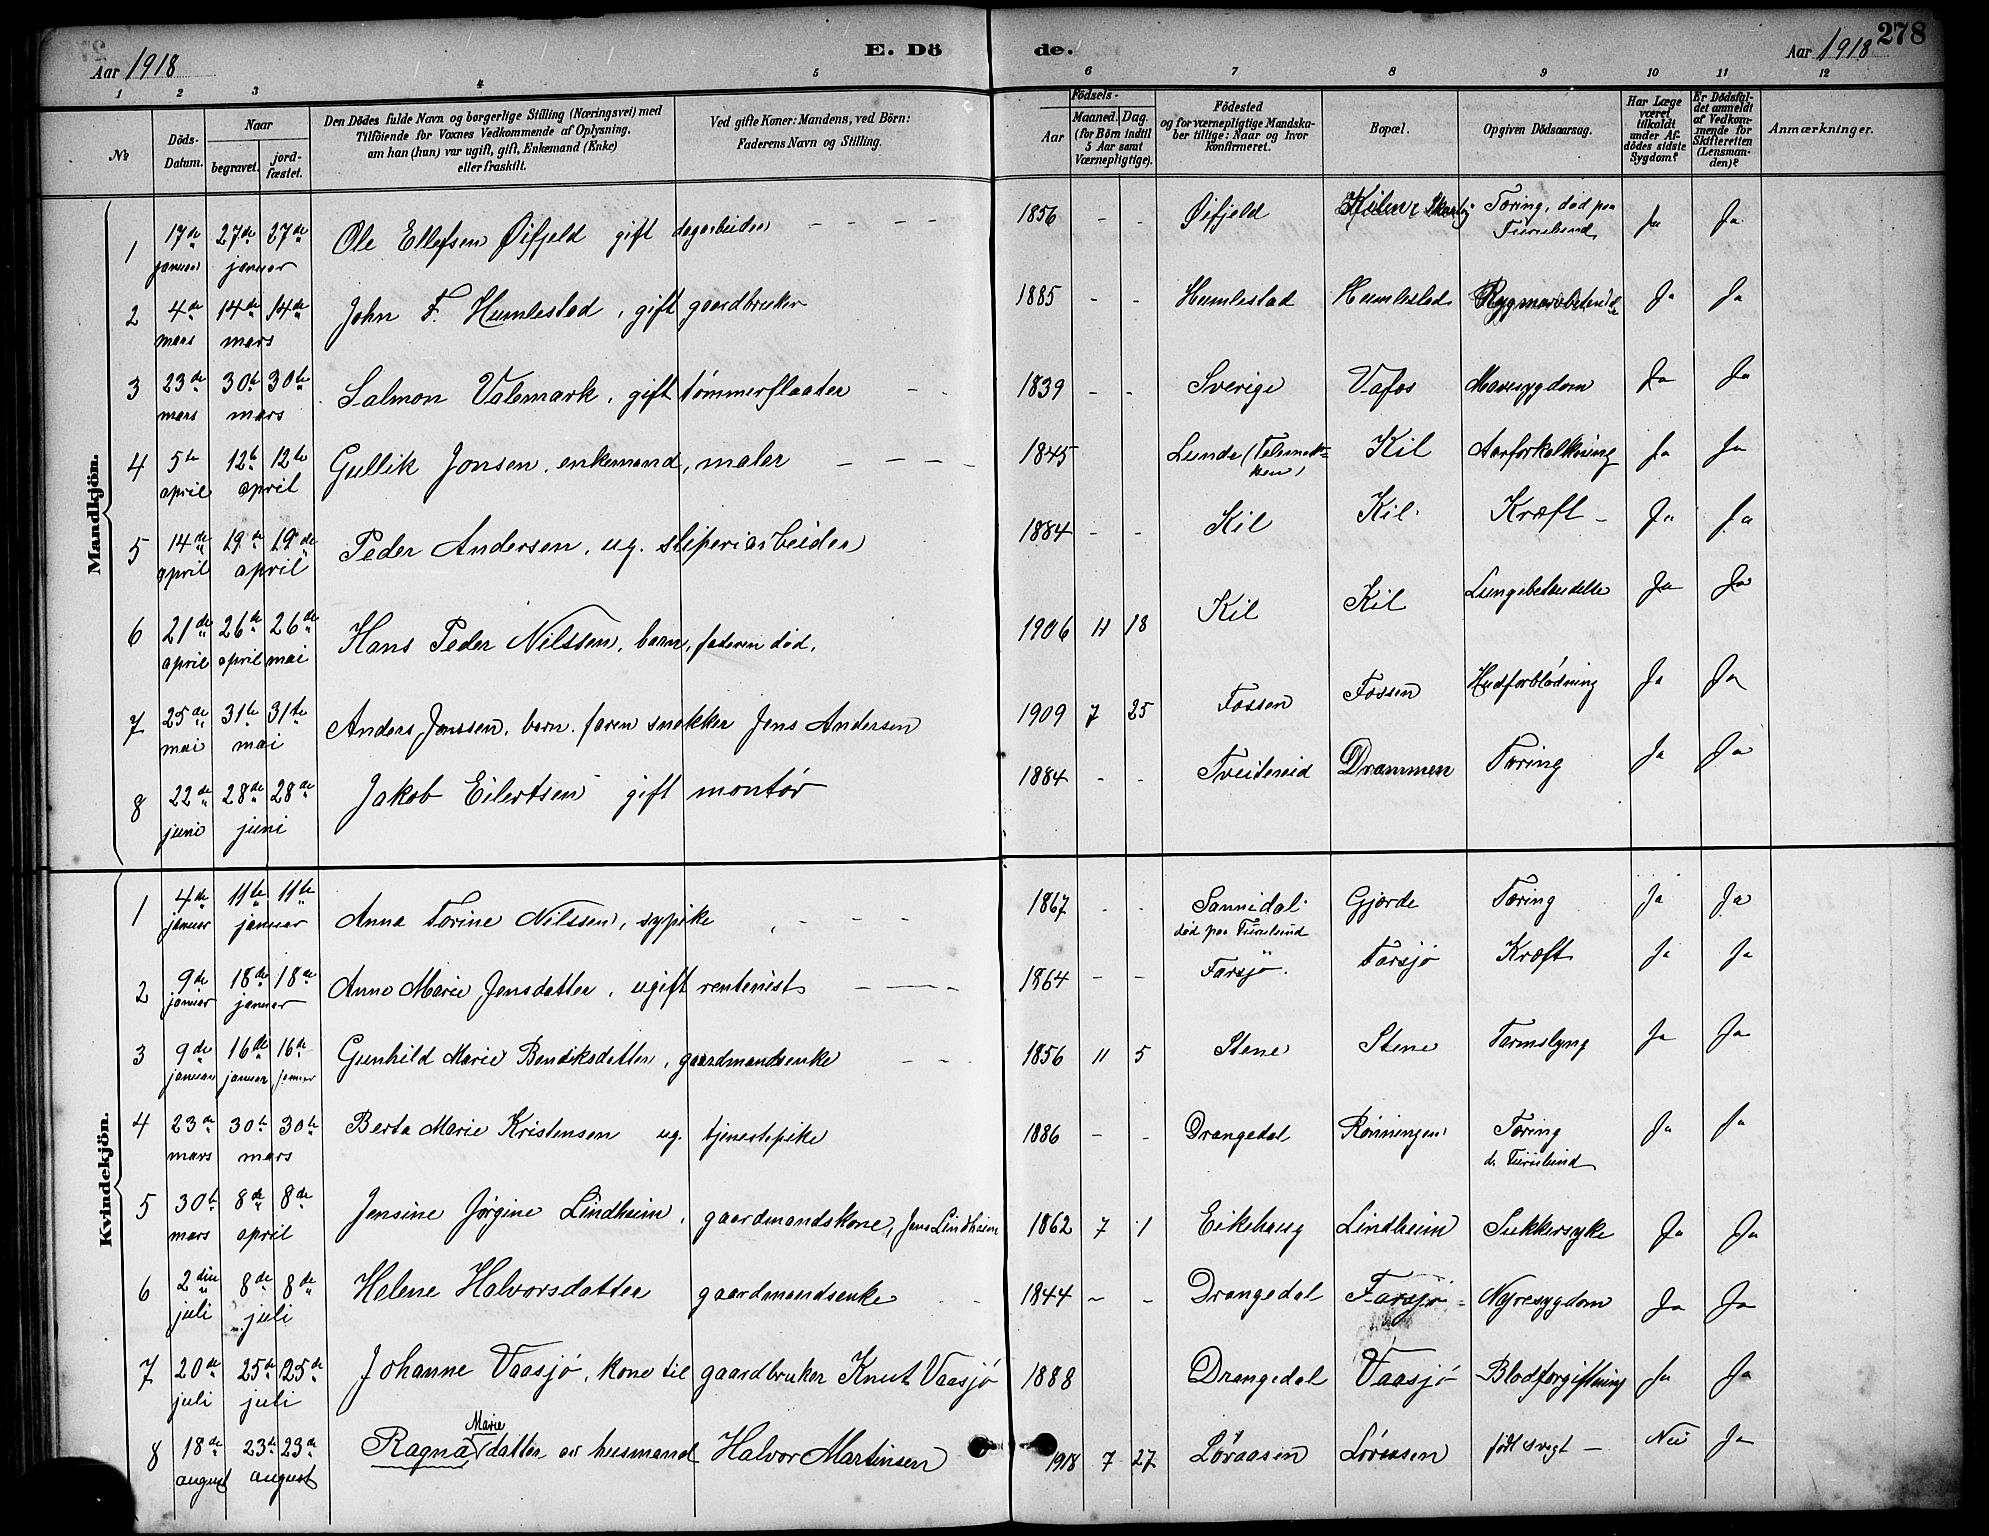 Aar 1918
E. Dö de.
Aar 1918
278
1 2 3 4 5 6 7 8 9 10 11 12
№
Döds-Datum.
Naar
begravet.
jord-fæstet.
Den Dödes fulde Navn og borgerlige Stilling (Næringsvei) med
Tilföiende for Voxnes Vedkommende af Oplysning,
om han (hun) var ugift, gift, Enkemand (Enke)
eller fraskilt.
Ved gifte Koner: Mandens, ved Börn:
Faderens Navn og Stilling.
Födsels-
Aar
Maaned. Dag.
(for Börn indtil
5 Aar samt
Værnepligtige).
Födested
og for værnepligtige Mandska-
ber tillige: Naar og hvor
konfirmeret.
Bopæl.
Opgiven Dödsaarsag.
Har Læge
været
tilkaldt
under Af-
dödes sidste
Sygdom?
Er Dödsfal-
det anmeldt
af Vedkom-
mende for
Skifteretten
(Lensman-
den)?
Anmærkninger.
Mandkjön.
1 17de januar 27de 27de januar Ole Ellefsen Øifjeld gift dagarbeider - - - - 1856 - - Øifjeld Tæring, død paa Furulund Ja Ja
2 4de mars 14de 14de mars John F. Humlestad, gift gaardbruker 1885 - - Humlestad Humlestad Ja Ja
3 23de mars 30te 30te mars Salmon Valemark, gift tømmerfløater - 1839 - - Sverige Vafos Mavesygdom Ja Ja
4 5te april 12te 12te april Gullik Jonsen, enkemand, maler - - - - 1845 Lunde (Telemarken) Kil Aarforkalkning Ja Ja
5 14de april 19de 19de april Peder Andersen, ug. sliperiarbeider 1884 - - Kil Kil. Kræft - Ja Ja
6 21de april 26de april 26de mai Hans Peder Nilssen, barn, faderen død. 1906 11 18 Kil Kil Lungebetændelse Ja Ja
7 25de mai 31te 31te mai Anders Jenssen, barn. faren snekker Jens Andersen 1909 7 25 Fossen Fossen Hudforblødning Ja Ja
8 22de juni 28de 28de juni Jakob Eilertsen gift montør 1884 - - Tveitereid Drammen Tæring Ja Ja
Kvindekjön.
1 4de januar 11te 11te januar Anna Torine Nilssen, sypike - - - 1867 - - Sannidal. død paa Furulund Gjerde Tæring Ja Ja
2 9de januar 18de 18de januar Anne Marie Jensdatter, ugift rentenist - - - - 1864 - - Farsjø. Farsjø Kræft Ja Ja
3 9de januar 16de januar 16de januar Gunhild Marie Bendiksdatter, gaardmandsenke - - 1856 11 5 Stene Stene Tarmslyng Ja Ja
4 23de mars 30te 30te mars Berta Marie Kristensen ug. tjenestepike 1886 - - Drangedal Rønningen Tæring d. Furulund Ja Ja
5 30te mars 8de 8de april Jensine Jørgine Lindheim, gaardmandskone, Jens Lindheim 1862 7 1 Eikehaug Lindheim Sukkersyke Ja Ja
6 2den juli 8de 8de juli Helene Halvorsdatter gaardmandsenke - - 1844 - - Drangedal Farsjø - Nyresygdom Ja Ja
7 20de juli 25de 25de juli Johanne Vaasjø, kone til gaardbruker Knut Vaasjø 1888 Drangedal Vaasjø Blodforgiftning Ja Ja
8 18de august 23de 23de august Ragna Marie (datter av husmand Halvor Martinsen 1918 7 27 Løraasen Løraasen født svagt - Nei Ja